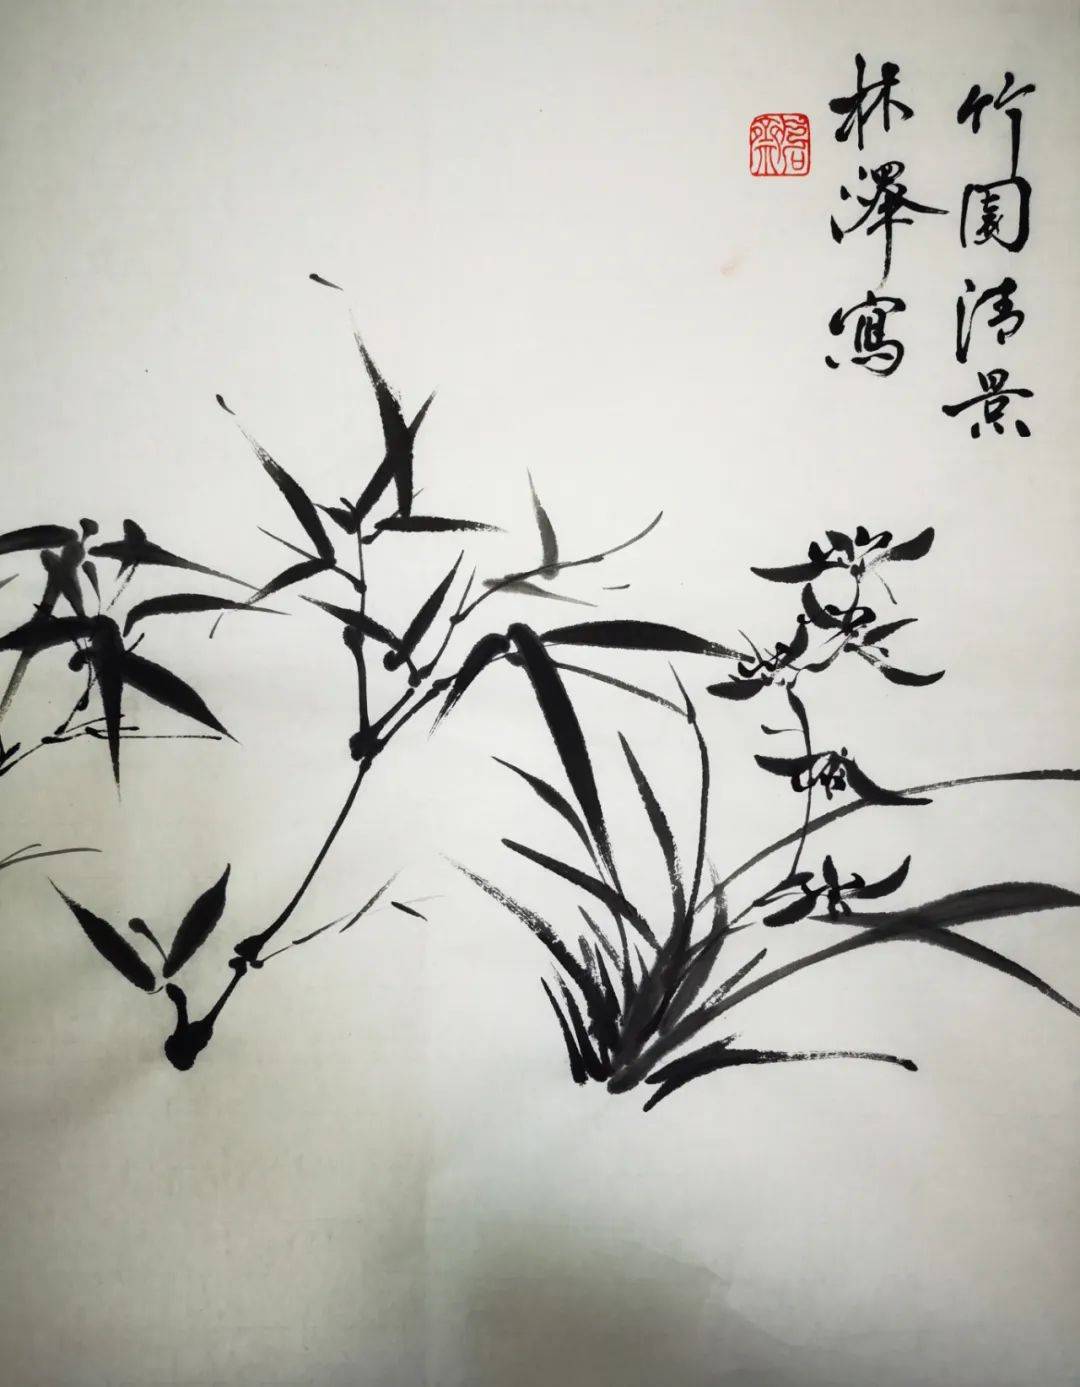 竹園清景
林澤寫